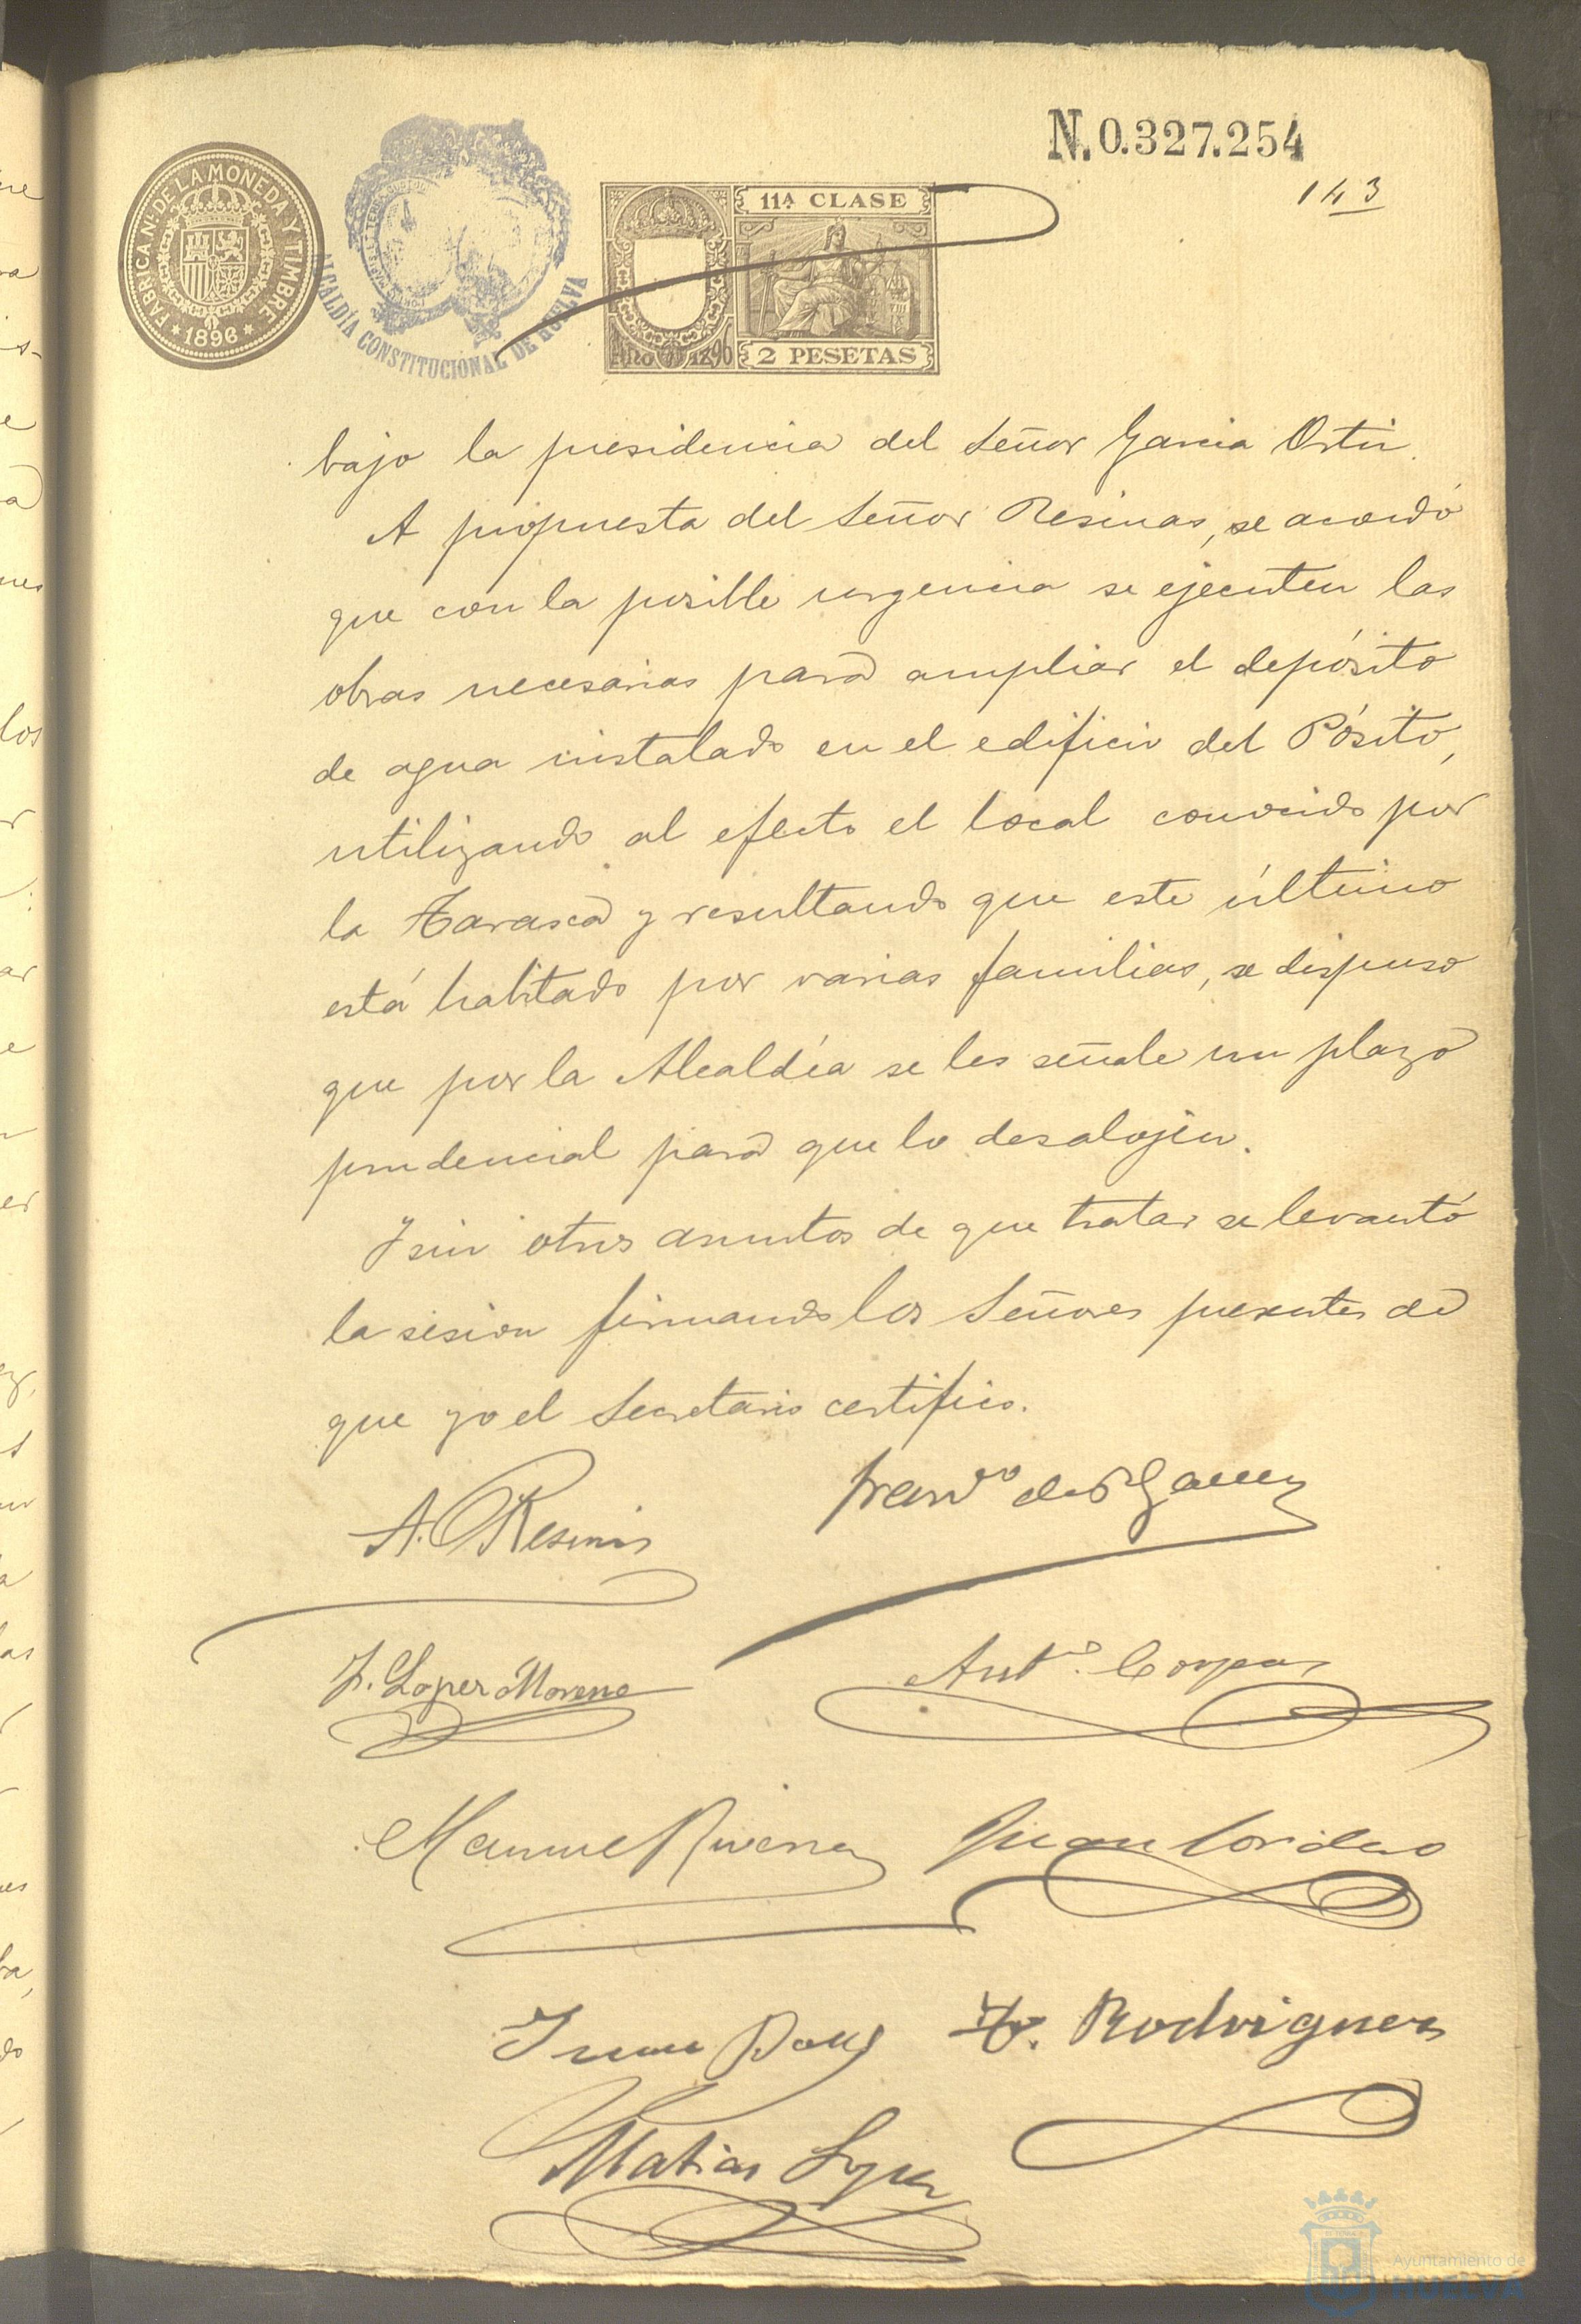 N.0.327.254
143
FABRICA N. DE LA MONEDA Y TIMBRE
* 1896 *
ALCALDÍA CONSTITUCIONAL DE HUELVA
11ª CLASE
2 PESETAS
bajo la presidencia del Señor Garcia Ortiz.
A propuesta del Señor Resinas, se acordó
que con la posible urgencia se ejecuten las
obras necesarias para ampliar el depósito
de agua instalado en el edificio del Pósito,
utilizando al efecto el local conocido por
la Tarasca y resultando que este último
está habitado por varias familias, se dispuso
que por la Alcaldía se les señale un plazo
prudencial para que lo desalojen.
Y sin otros asuntos de que tratar se levantó
la sesion firmando los Señores presentes de
que yo el Secretario certifico.
A. Resinas
Franco de P.
López Moreno
Antº. Corpas
Manuel Rivera
Juan Cordero
Rodriguez
Matias Lopez
Ayuntamiento de
HUELVA